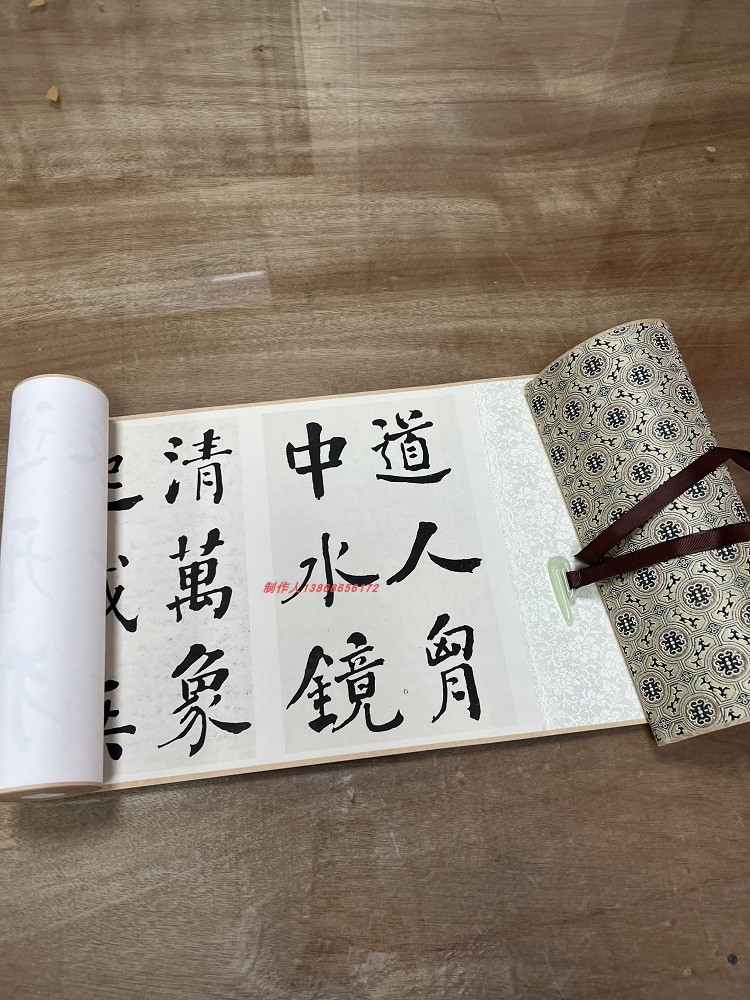 道人胷
中水鏡
清萬象
制作人13868656172